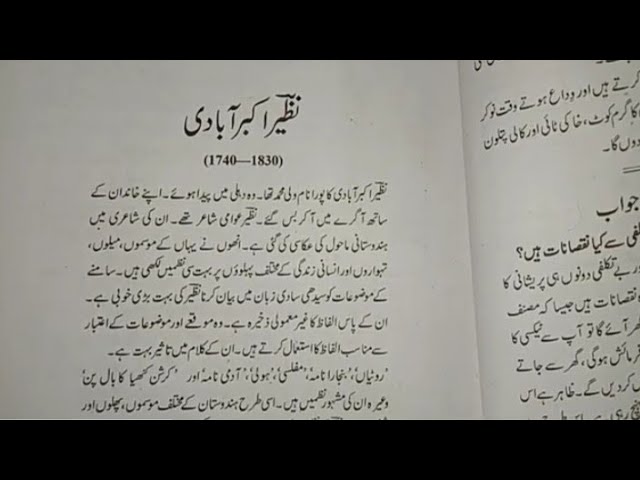 نظیر اکبر آبادی
(1740—1830)
نظیر اکبر آبادی کا پورا نام ولی محمد تھا۔ وہ دہلی میں پیدا ہوئے۔ اپنے خاندان کے
ساتھ آگرے میں آ کر بس گئے۔ نظیر عوامی شاعر تھے۔ ان کی شاعری میں
ہندوستانی ماحول کی عکاسی کی گئی ہے۔ انھوں نے یہاں کے موسموں، میلوں،
تہواروں اور انسانی زندگی کے مختلف پہلوؤں پر بہت سی نظمیں لکھی ہیں۔ سامنے
کے موضوعات کو سیدھی سادی زبان میں بیان کرنا نظیر کی بہت بڑی خوبی ہے۔
ان کے پاس الفاظ کا غیر معمولی ذخیرہ ہے۔ وہ موقعے اور موضوعات کے اعتبار
سے مناسب الفاظ کا استعمال کرتے ہیں۔ ان کے کلام میں تاثیر بہت ہے۔
'روٹیاں'، 'بنجارا نامہ'، 'مفلسی'، 'ہولی'، 'آدمی نامہ' اور 'کرشن کنھیا کا بال پن'
وغیرہ ان کی مشہور نظمیں ہیں۔ اسی طرح ہندوستان کے مختلف موسموں، پھلوں اور
کرتے ہیں اور وداع ہوتے وقت نوکر
کا گرم کوٹ، خاکی ٹائی اور کالی پتلون
دوں گا۔
جواب
تکلفی سے کیا نقصانات ہیں؟
بے تکلفی دونوں ہی پریشانی کا
نقصانات ہیں جیسا کہ مصنف
گھر آئے گا تو آپ سے ٹیکسی کا
فرمائش ہوگی، گھر سے جاتے
کر دیں گے۔ ظاہر ہے اس